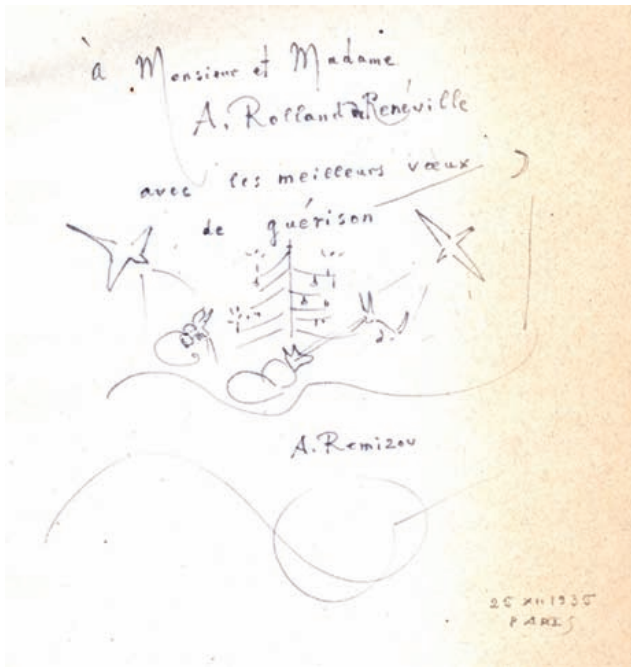 à Monsieur et Madame
A. Rolland de Renéville
avec les meilleurs vœux
de guérison
A. Remizov
25 XII 1935
PARIS